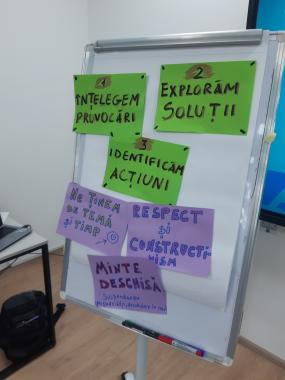 1
ÎNȚELEGEM
PROVOCĂRI
2
EXPLORĂM
SOLUȚII
3
IDENTIFICĂM
ACȚIUNI
NE ȚINEM
DE TEMĂ
ȘI TIMP
RESPECT
ȘI
CONSTRUCTI-
VISM
MINTE
DESCHISĂ